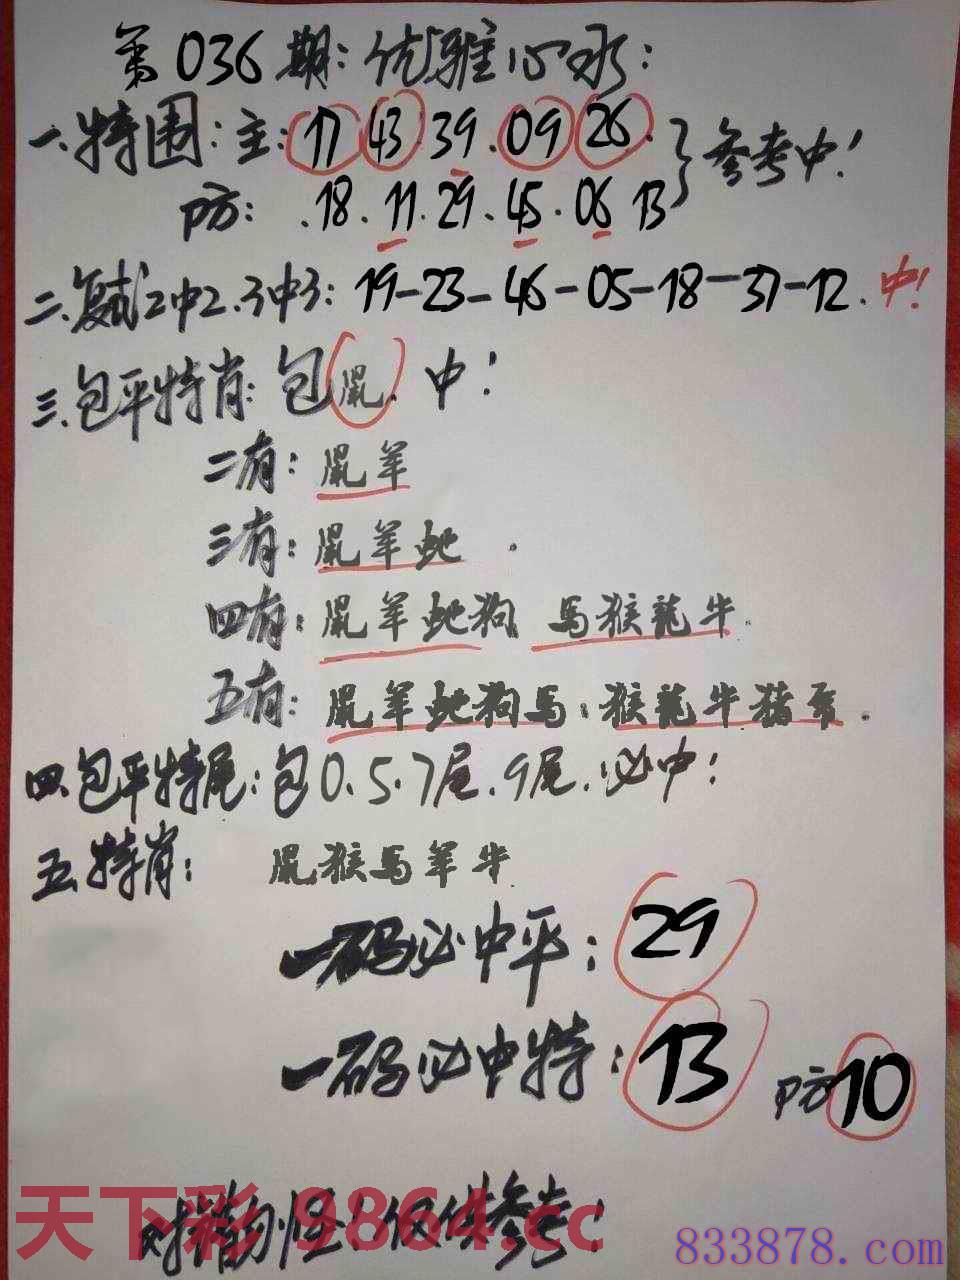 第036期:优雅心水:
一.特围:主:17.43.39.09.26.
防:.18.11.29.45.06 13 }参考中!
二.复式2中2.3中3:19-23-46-05-18-37-12.中!
三.包平特肖:包鼠.中!
二有:鼠羊
三有:鼠羊蛇.
四有:鼠羊蛇狗 馬猴龍牛.
五有:鼠羊蛇狗馬:猴龍牛豬
四.包平特尾:包0.5.7尾.9尾.必中!
五.特肖: 鼠猴馬羊牛
一码必中平:29
一码必中特:13 防10
勿怪!仅供参考!
天下彩 9864.cc
833878.com